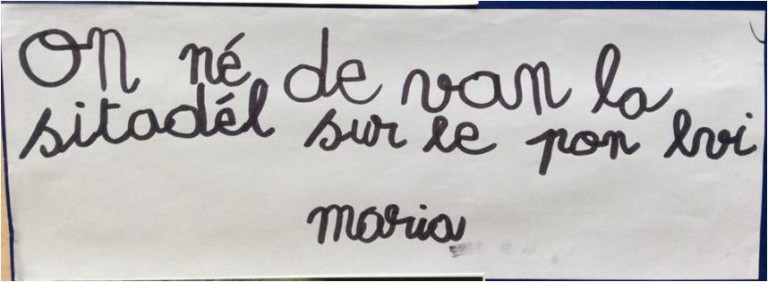 On né de van la
sitadél sur le pon lvi
maria